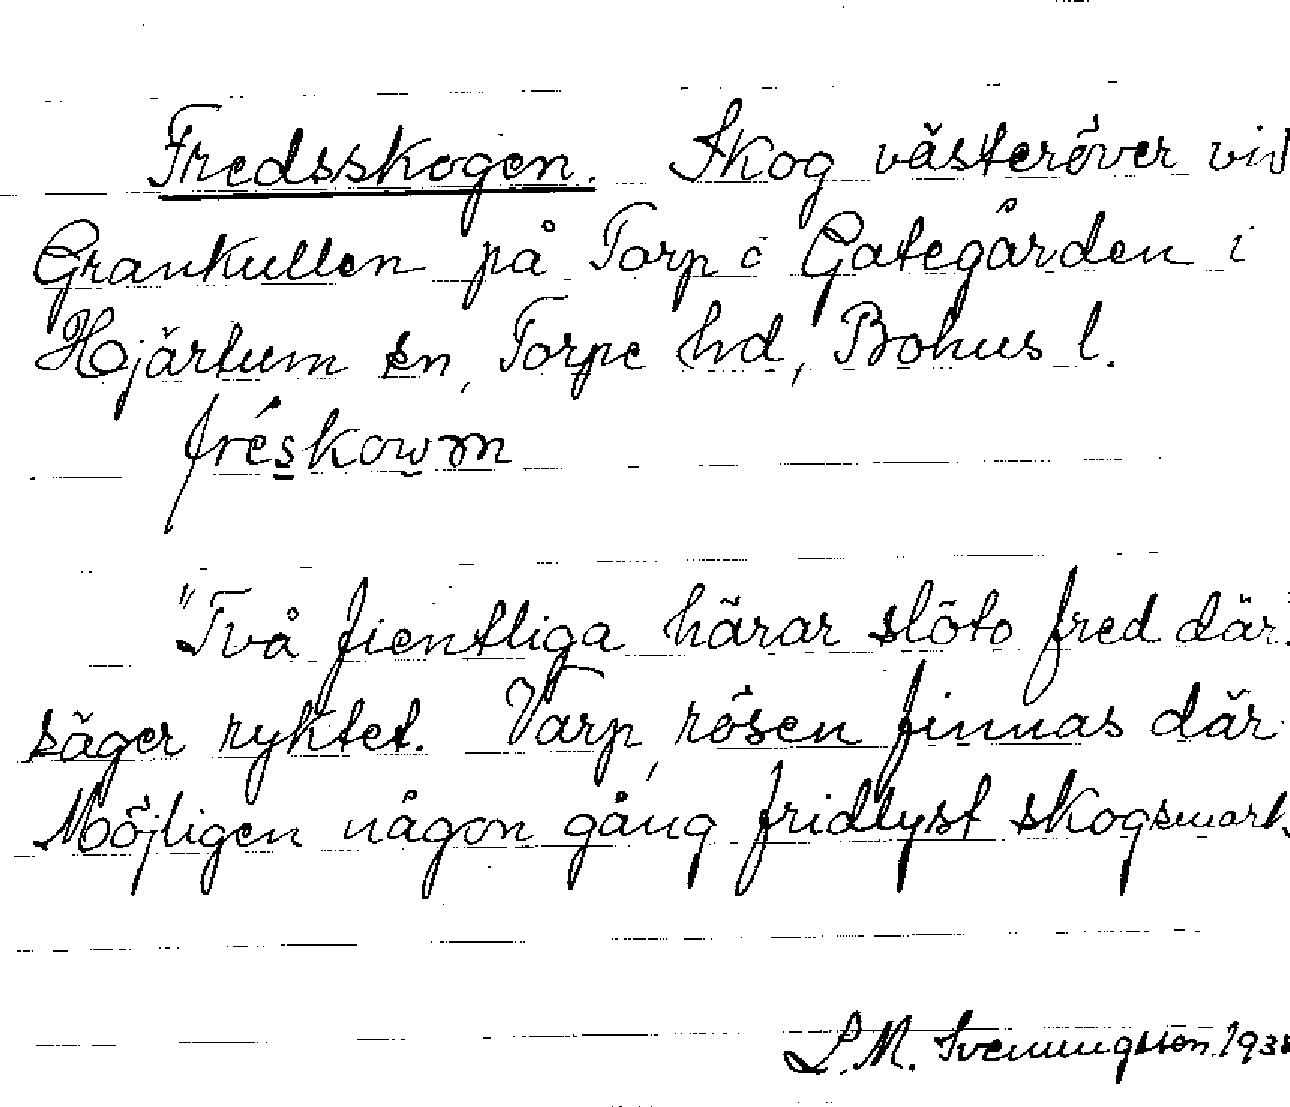 Fredsskogen. Skog västeröver vid
Grankullen på Torp o Gategården i
Hjärtum sn, Torpe hd, Bohus l.
fréskowen
"Två fientliga härar slöto fred där"
säger ryktet. Varp, rösen finnas där.
Möjligen någon gång fridlyst skogsmark.
L.M. Svenungsson